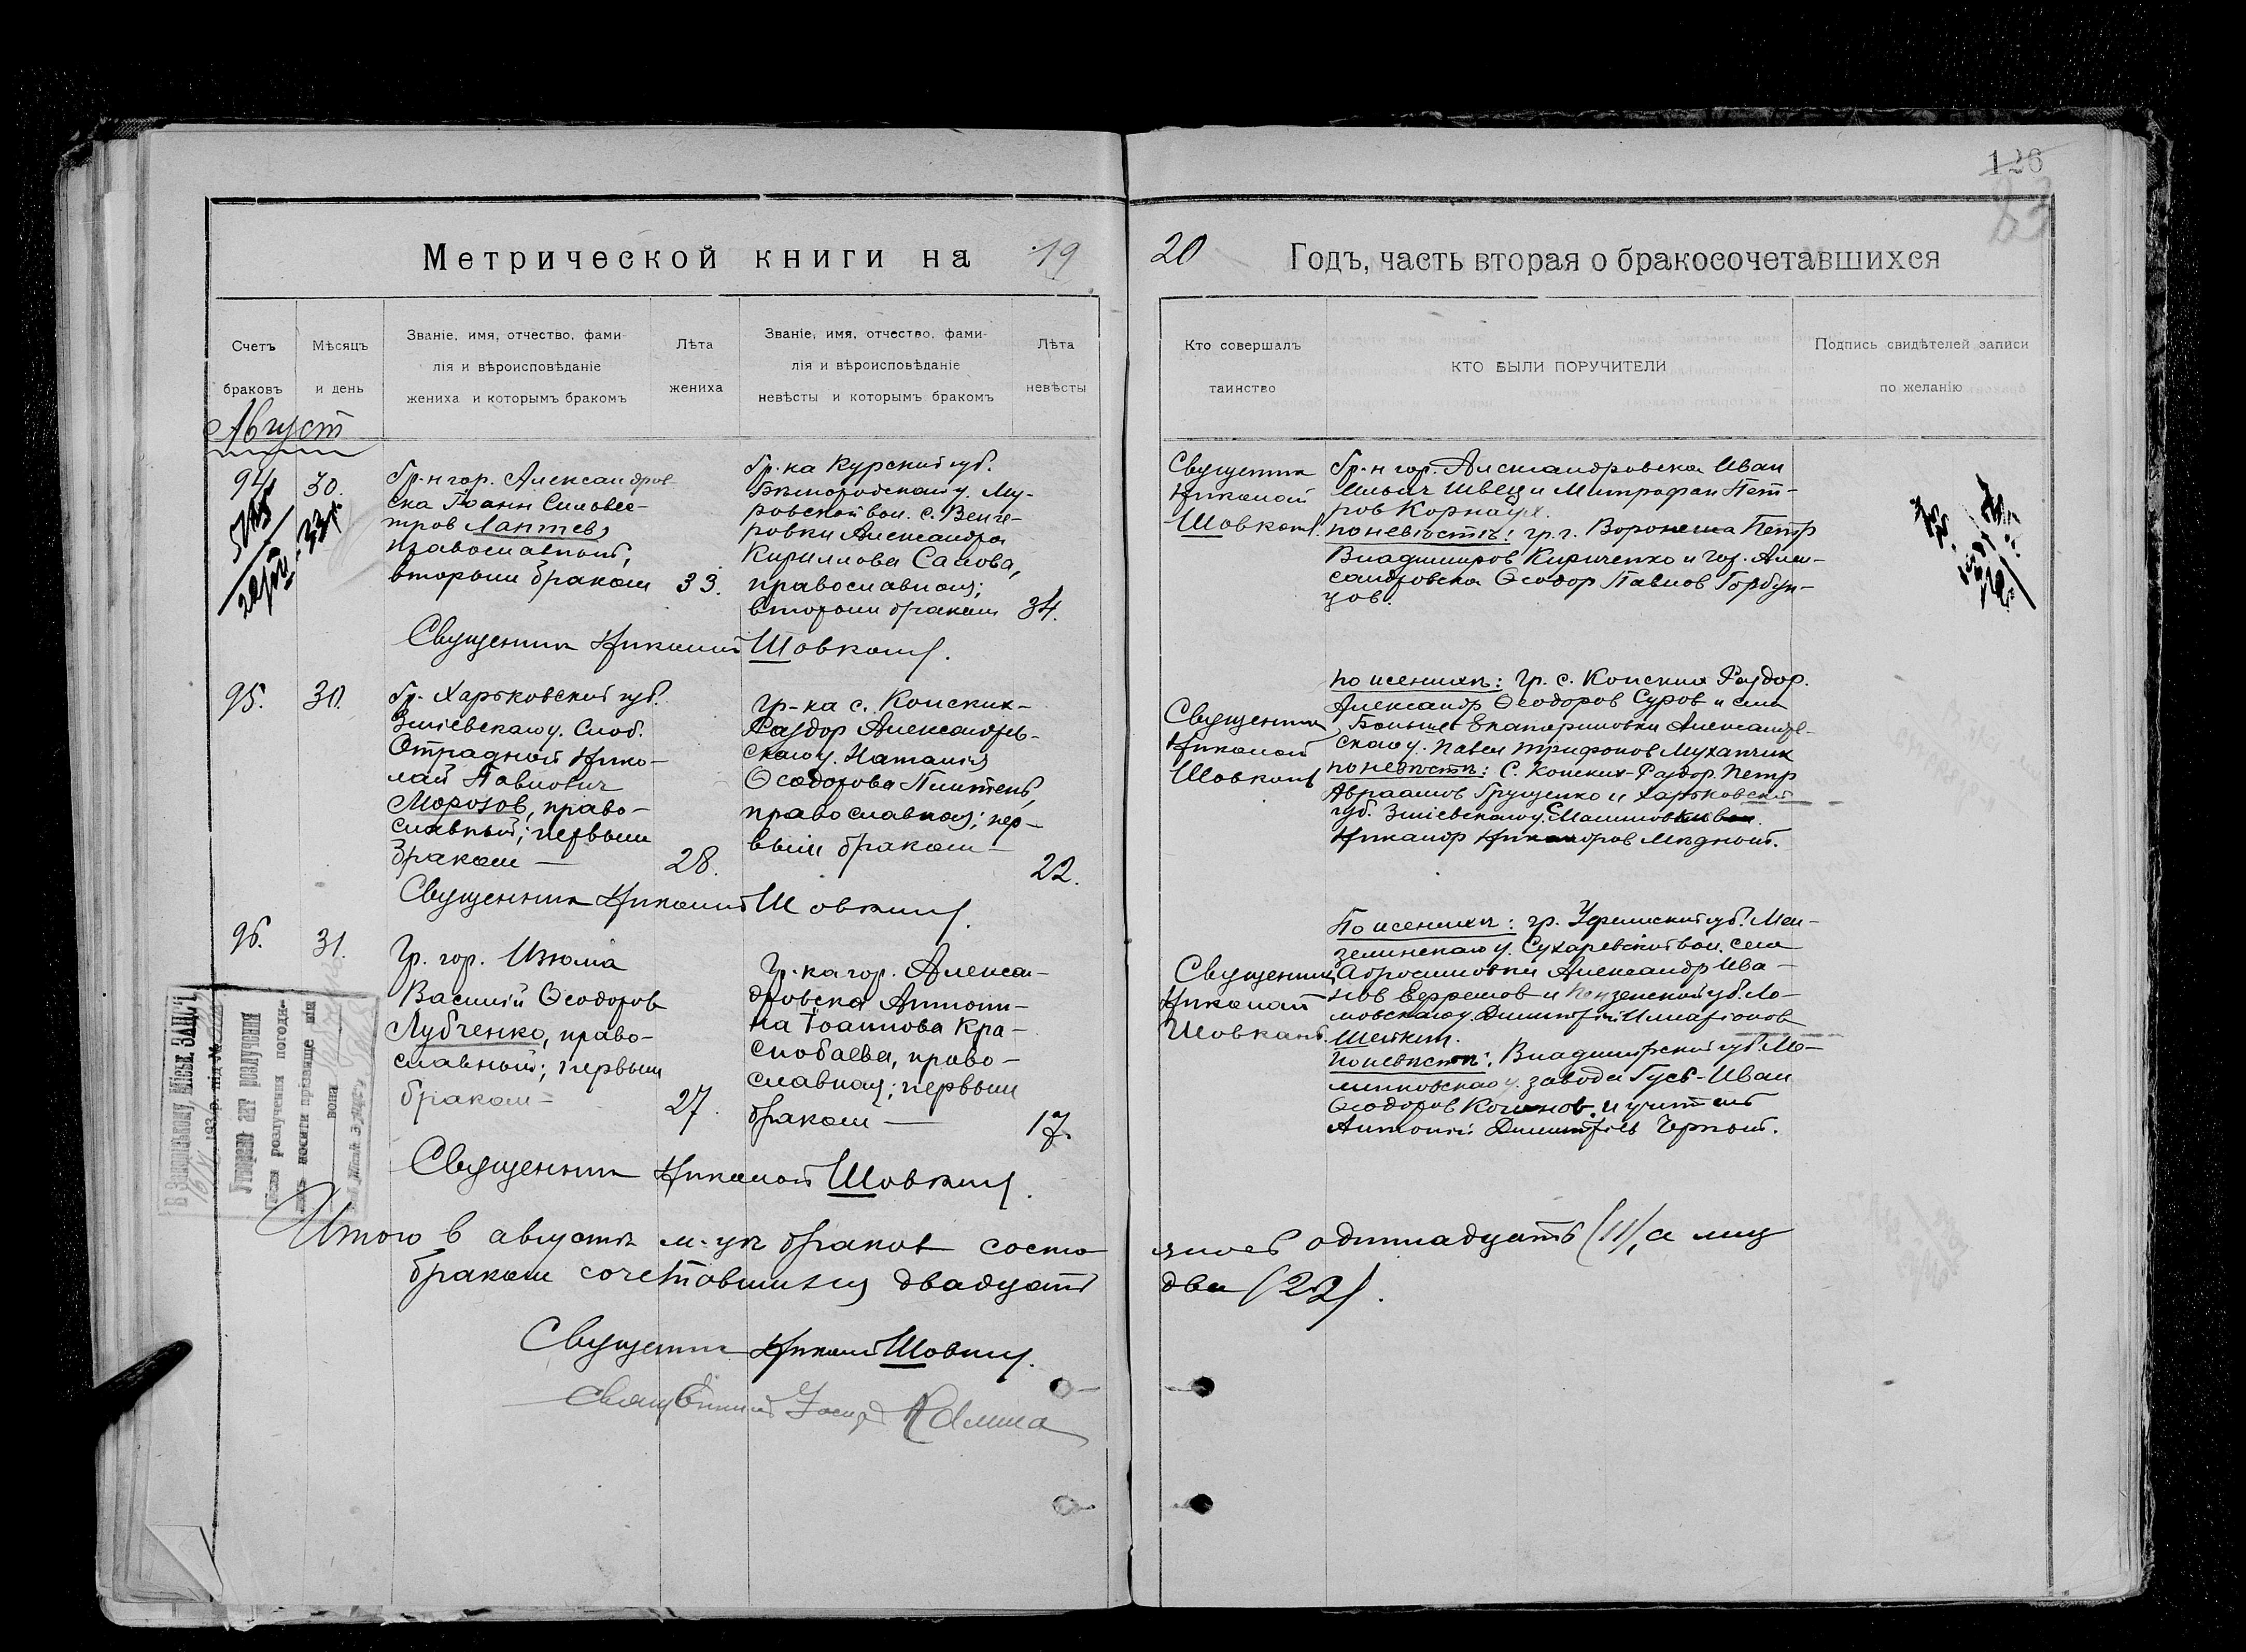 126
83
Метрической книги на 19
20 Годъ, часть вторая о бракосочетавшихся
Счетъ
браковъ
Мѣсяцъ
и день
Званіе, имя, отчество, фами-
лія и вѣроисповѣданіе
жениха и которымъ бракомъ
Лѣта
жениха
Званіе, имя, отчество, фами-
лія и вѣроисповѣданіе
невѣсты и которымъ бракомъ
Лѣта
невѣсты
Кто совершалъ
таинство
КТО БЫЛИ ПОРУЧИТЕЛИ
Подпись свидѣтелей записи
по желанію
Август
94
30.
Гр-н гор. Александров-
ска Іоанн Силовес-
тров Лаптев,
православный,
вторым браком 33.
Гр-ка Курской губ.
Белгородскаго у. Му-
ровской вол. с. Венге-
ровки Александра
Кириллова Салова,
православная;
вторым браком 34.
Священник Николай Шовкопл.
Священник
Николай
Шовкопл.
Гр-н гор. Александровска Иван
Ильич Швец и Митрофан Пет-
ров Корнаух.
по невѣстѣ: гр. г. Воронежа Петр
Владимиров Кириченко и гор. Алек-
сандровска Ѳеодор Павлов Горбун-
цов.
95.
30.
Гр. Харьковской губ.
Зміевскаго у. Слоб.
Отрадной Нико-
лай Павлович
Морозов, право-
славный; первым
браком — 28.
Гр-ка с. Конских-
Раздор Александров-
скаго у. Наталія
Ѳеодорова Плитень,
православная; пер-
вым браком — 22.
Священник Николай Шовкопл.
Священник
Николай
Шовкопл
по женихѣ: гр. с. Конских Раздор.
Александр Ѳеодоров Суров и села
Больше Екатериновки Александров-
скаго у. Павел Трифонов Муханчик
по невѣстѣ: с. Конских-Раздор. Петр
Авраамов Грущенко и Харьковской
губ. Зміевскаго у.
Никанор Никандров Мѣдный.
96.
31.
Гр. гор. Изюма
Василій Ѳеодоров
Лубченко, право-
славный; первым
браком — 27.
Гр-ка гор. Алексан-
дровска Антони-
на Іоаннова Кра-
снобаева, право-
славная; первым
браком — 17.
Священник Николай Шовкопл.
Священник
Николай
Шовкопл.
По женихѣ: гр. Уфимской губ. Мен-
зелинскаго у. Сухаревской вол. села
Абросимовки Александр Ива-
нов Ефремов и Пензенской губ. Ло-
мовскаго у. Димитрій Иларіонов
Шейкин.
По невѣстѣ: Владимирской губ. Ме-
ленковскаго у. завода Гусь - Иван
Ѳеодоров Коченов. и учитель
Антоній Димитріев Черный.
Утворено акт розлучення
після розлучення погоди-
лись носити прізвище він
вона
Итого в августѣ м-цѣ браков состо
ялось одиннадцать (11), а лиц
браком сочетавшихся двадцать
два (22).
Священник Николай Шовкопл.
Священник